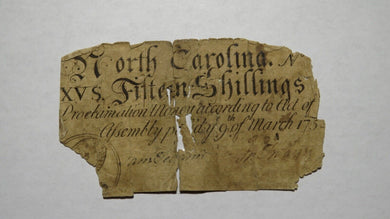 North Carolina. N
XVS. Fifteen Shillings
Proclamation Money according to Act of
Assembly 9th of March 175